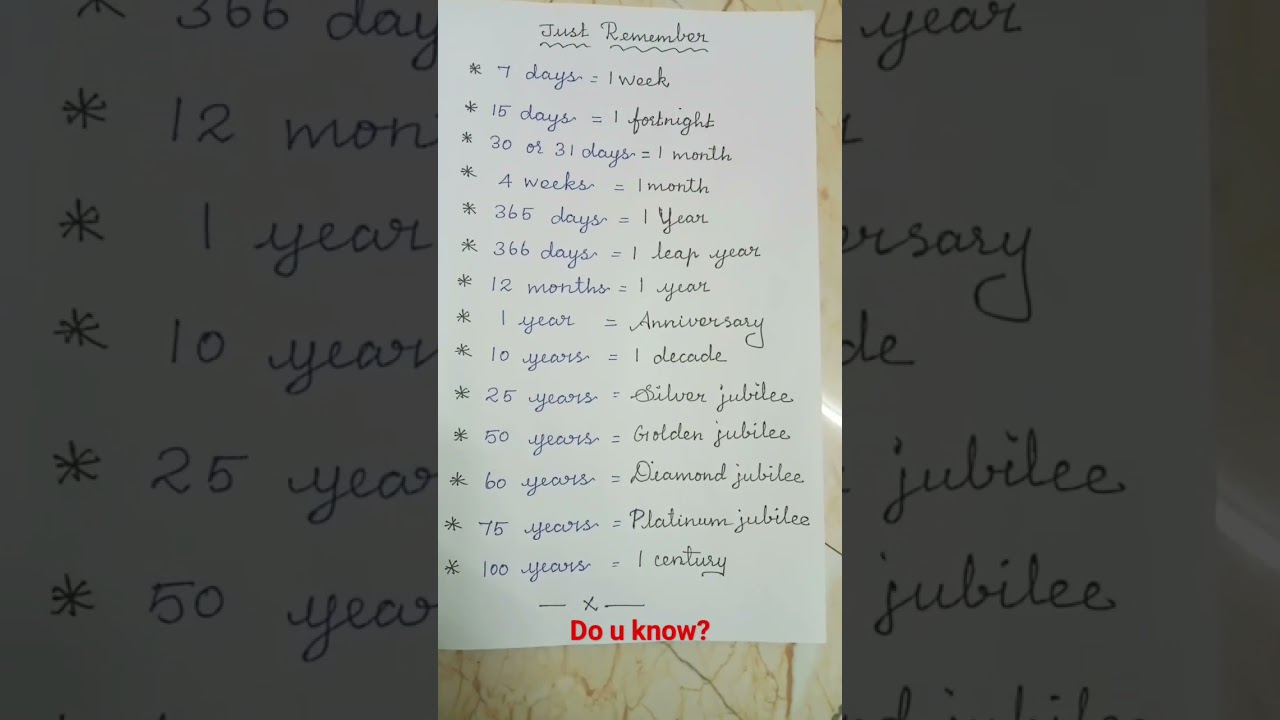 Just Remember
* 7 days = 1 week
* 15 days = 1 fortnight
* 30 or 31 days = 1 month
* 4 weeks = 1 month
* 365 days = 1 Year
* 366 days = 1 leap year
* 12 months = 1 year
* 1 year = Anniversary
* 10 years = 1 decade
* 25 years = Silver jubilee
* 50 years = Golden jubilee
* 60 years = Diamond jubilee
* 75 years = Platinum jubilee
* 100 years = 1 century
— x —
Do u know?